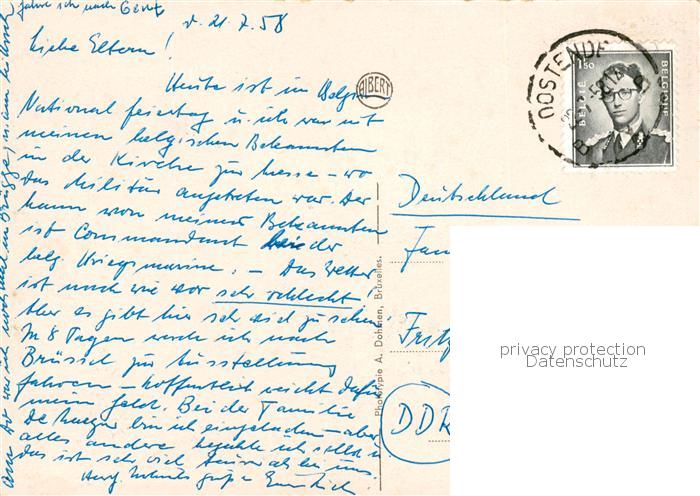 fahre ich nach Gent
d. 21.7.58
Liebe Eltern!
Heute ist in Belgi
National feiertag u. ich war mit
meinen belgischen Bekannten
in der Kirche zur Messe – wo
das Militär angetreten war. Der
Mann von meiner Bekannten
ist Commandant bei der
belg. Kriegsmarine. – Das Wetter
ist nach wie vor sehr schlecht
Aber es gibt hier sehr viel zu sehen
In 8 Tagen werde ich nach
Brüssel zur Ausstellung
fahren – hoffentlich reicht dafür
mein Geld. Bei der Familie
De bin ich eingeladen – aber
alles andere bezahle ich selbst u
das ist sehr viel teurer als bei uns
Herzl. Grüße Euer
Am war ich nochmal in Brügge,
ALBERT
Phototypie A. Dohmen, Bruxelles.
OOSTENDE
1,50
BELGIE BELGIQUE
Deutschland
Fam
Fritz
DDR
privacy protection
Datenschutz